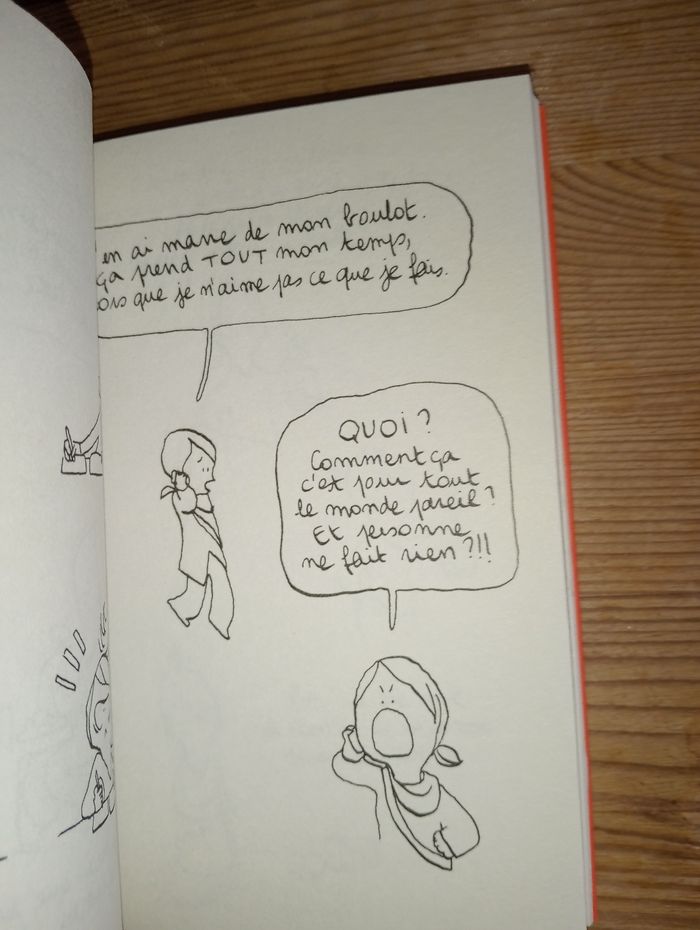 'en ai marre de mon boulot.
ça prend TOUT mon temps,
ors que je n'aime pas ce que je fais.
QUOI ?
Comment ça
c'est pour tout
le monde pareil ?
Et personne
ne fait rien ?!!